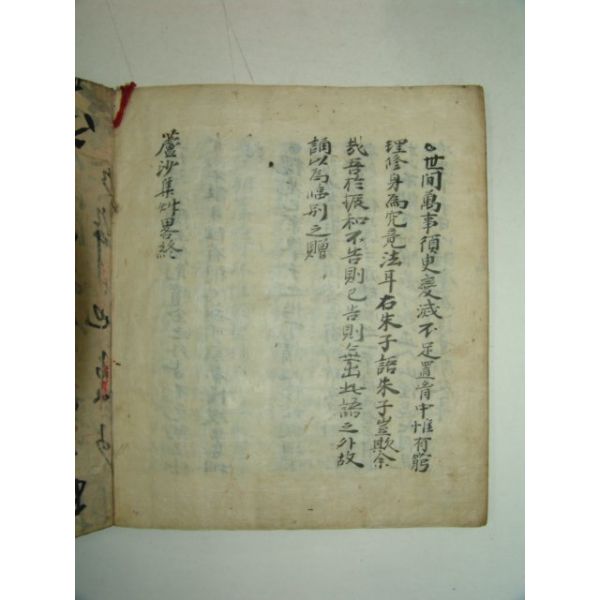 世間萬事須臾變滅不足置胷中惟有窮
理修身為究竟法耳右朱子語朱子豈欺余
哉吾於振和不告則已告則無出此語之外故
誦以為臨別之贈
蘆沙集抄畧終